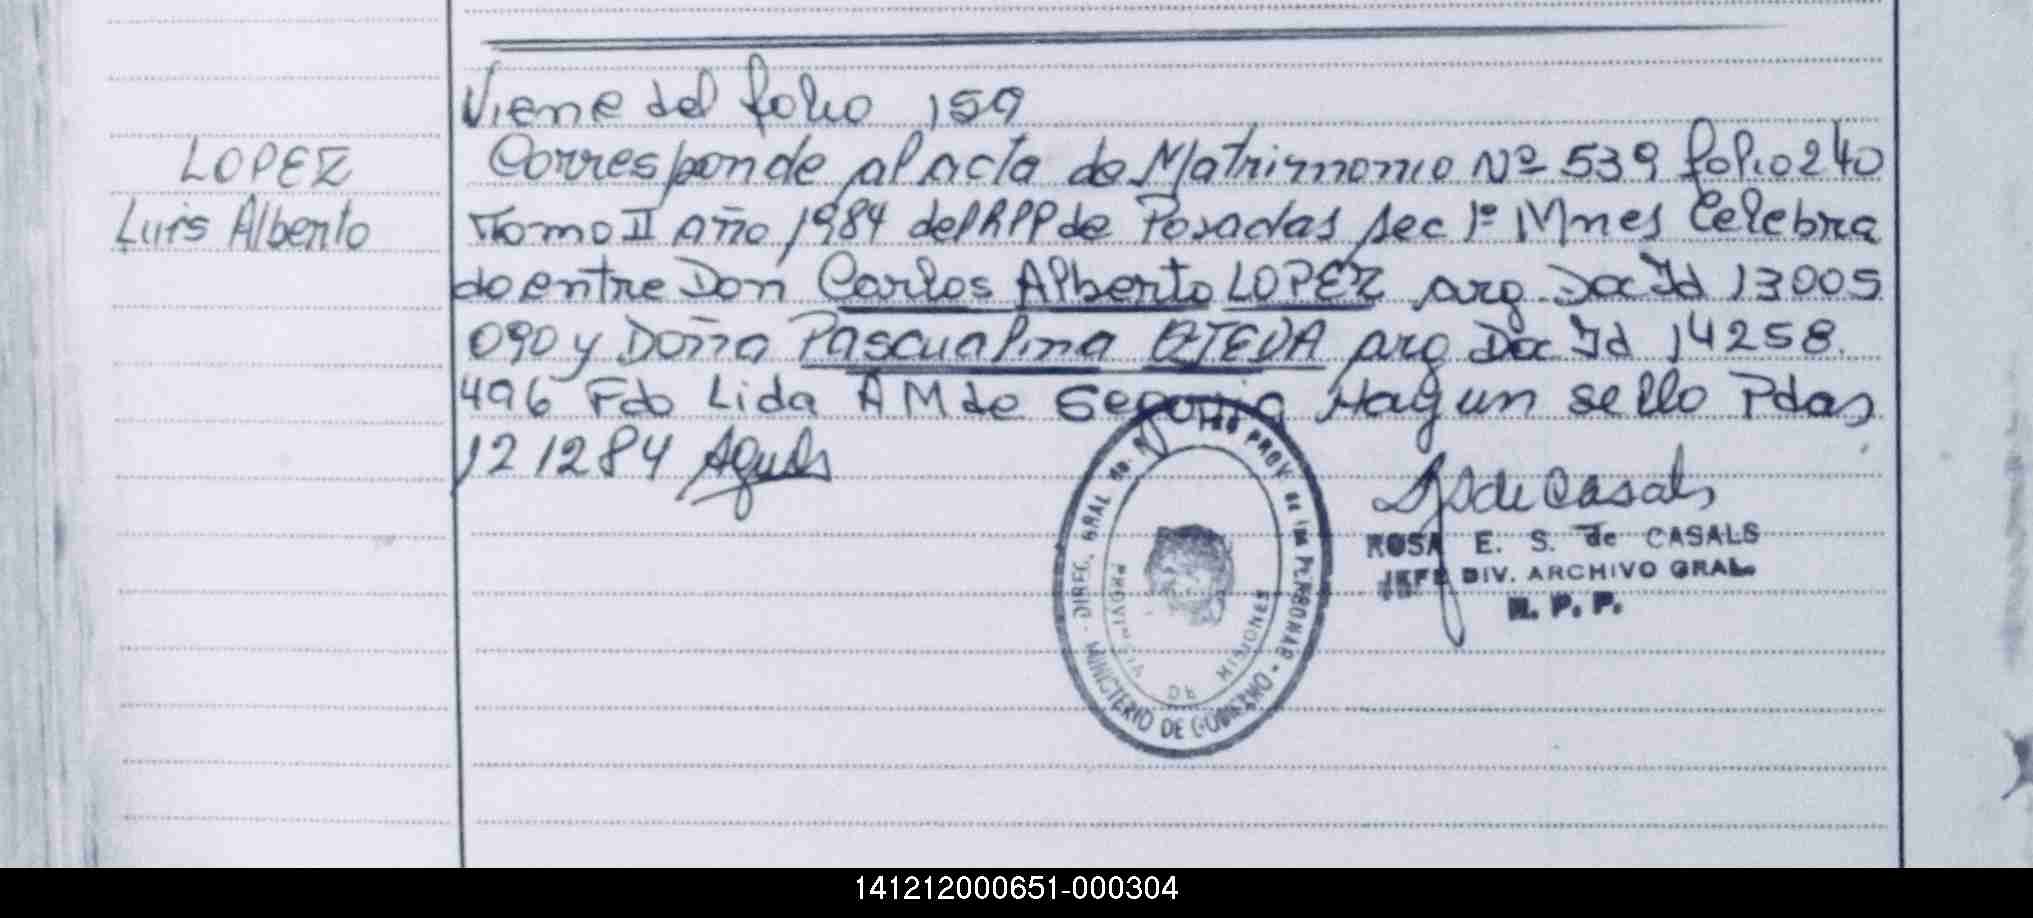 Viene del folio 159
LOPEZ
Luis Alberto
Corresponde al acta de Matrimonio Nº 539 folio 240
Tomo II año 1984 del RPP de Posadas sec 1º Mnes Celebra
do entre Don Carlos Alberto LOPEZ arg. Doc Id 13005
090 y Doña Pascualina arg Doc Id 14258.
496 Fdo Lida A M de Segovia Hay un sello Pdas
12 12 84
de Casals
ROSA E. S. de CASALS
JEFE DIV. ARCHIVO GRAL.
R. P. P.
DIREC. GRAL PROV. de las PERSONAS
MINISTERIO DE GOBIERNO
PROVINCIA DE MISIONES
141212000651-000304